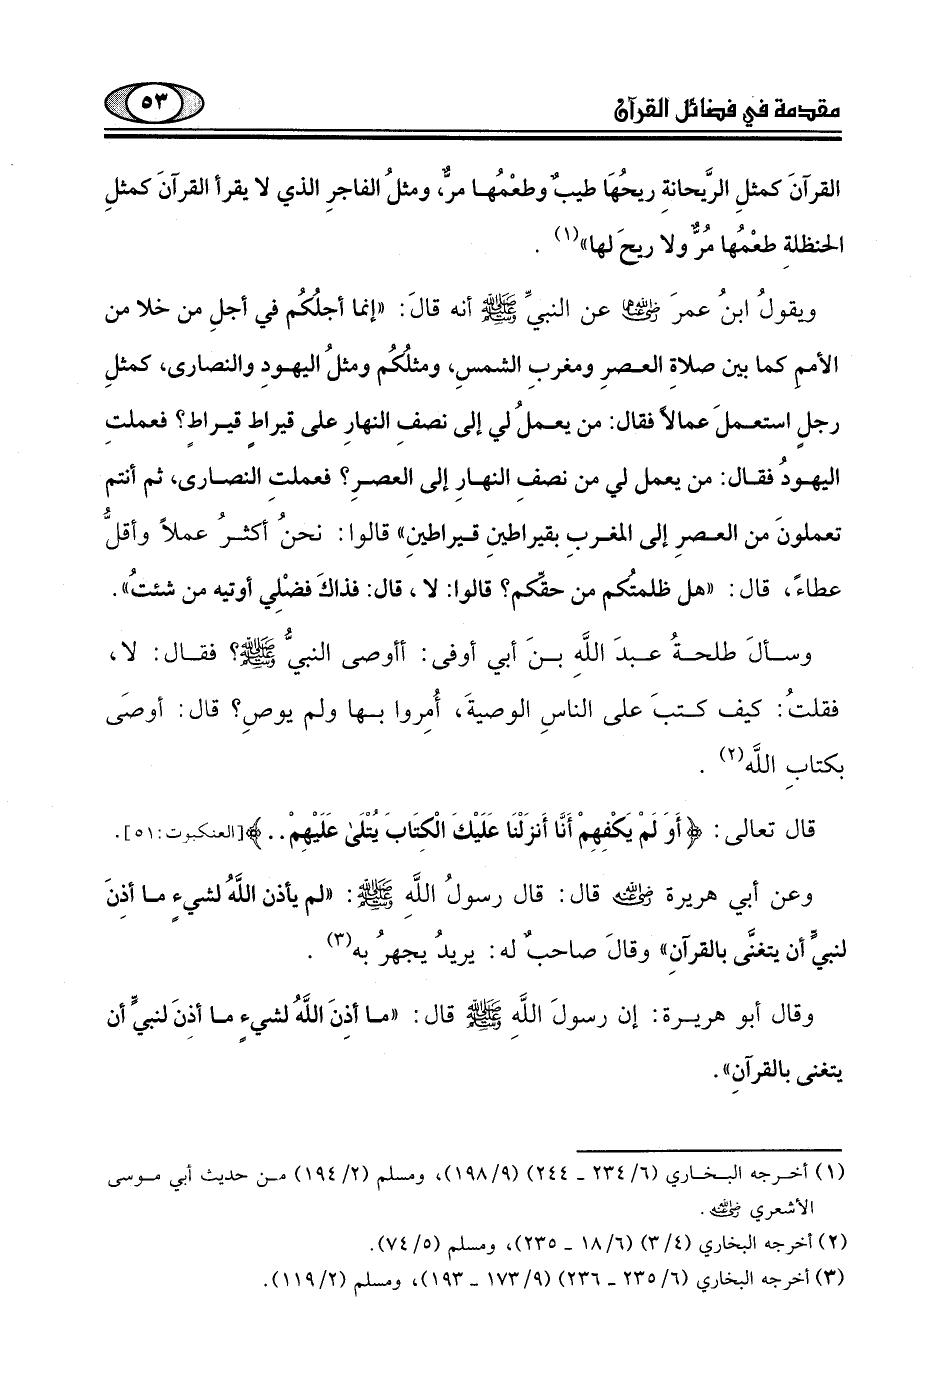 مقدمة في فضائل القرآن
٥٣
القرآنَ كمثلِ الرَّيحانةِ ريحُهَا طيبٌ وطعْمُها مرٌّ، ومثلُ الفاجرِ الذي لا يقرأ القرآنَ كمثلِ
الحنظلةِ طعْمُها مُرٌّ ولا ريحَ لها»(١) .
ويقولُ ابنُ عمرَ رضي الله عنهما عن النبيِّ ﷺ أنه قالَ: «إنما أجلُكُم في أجلِ من خلا من
الأممِ كما بين صلاةِ العصرِ ومغربِ الشمسِ، ومثلُكُم ومثلُ اليهودِ والنصارى، كمثلِ
رجلٍ استعملَ عمالاً فقال: من يعملُ لي إلى نصفِ النهارِ على قيراطٍ قيراطٍ؟ فعملتِ
اليهودُ فقال: من يعمل لي من نصفِ النهارِ إلى العصرِ؟ فعملتِ النصارى، ثم أنتم
تعملونَ من العصرِ إلى المغربِ بقيراطينِ قيراطينِ» قالوا: نحنُ أكثرُ عملاً وأقلُّ
عطاءً، قال: «هل ظلمتُكم من حقِّكم؟ قالوا: لا، قال: فذاكَ فضْلِي أوتيه من شئتُ».
وسألَ طلحةُ عبدَ اللَّهِ بنَ أبي أوفى: أأوصى النبيُّ ﷺ؟ فقال: لا،
فقلتُ: كيف كتبَ على الناسِ الوصيةَ، أُمِروا بها ولم يوصِ؟ قال: أوصَى
بكتابِ اللَّه(٢) .
قال تعالى: ﴿أَوَ لَمْ يَكْفِهِمْ أَنَّا أَنزَلْنَا عَلَيْكَ الْكِتَابَ يُتْلَىٰ عَلَيْهِمْ..﴾[العنكبوت:٥١].
وعن أبي هريرة رضي الله عنه قال: قال رسولُ اللَّهِ ﷺ: «لم يأذن اللَّهُ لشيءٍ ما أذِنَ
لنبيٍّ أن يتغنَّى بالقرآنِ» وقالَ صاحبٌ له: يريدُ يجهرُ به(٣) .
وقال أبو هريرة: إن رسولَ اللَّهِ ﷺ قال: «ما أذِنَ اللَّهُ لشيءٍ ما أذِنَ لنبيٍّ أن
يتغنى بالقرآنِ».
(١) أخرجه البخاري (٦/ ٢٣٤ ـ ٢٤٤) (٩/ ١٩٨)، ومسلم (٢/ ١٩٤) من حديث أبي موسى
الأشعري رضي الله عنه .
(٢) أخرجه البخاري (٣/٤) (٦/ ١٨ ـ ٢٣٥)، ومسلم (٥/ ٧٤).
(٣) أخرجه البخاري (٦/ ٢٣٥ ـ ٢٣٦) (٩/ ١٧٣ ـ ١٩٣)، ومسلم (٢/ ١١٩).